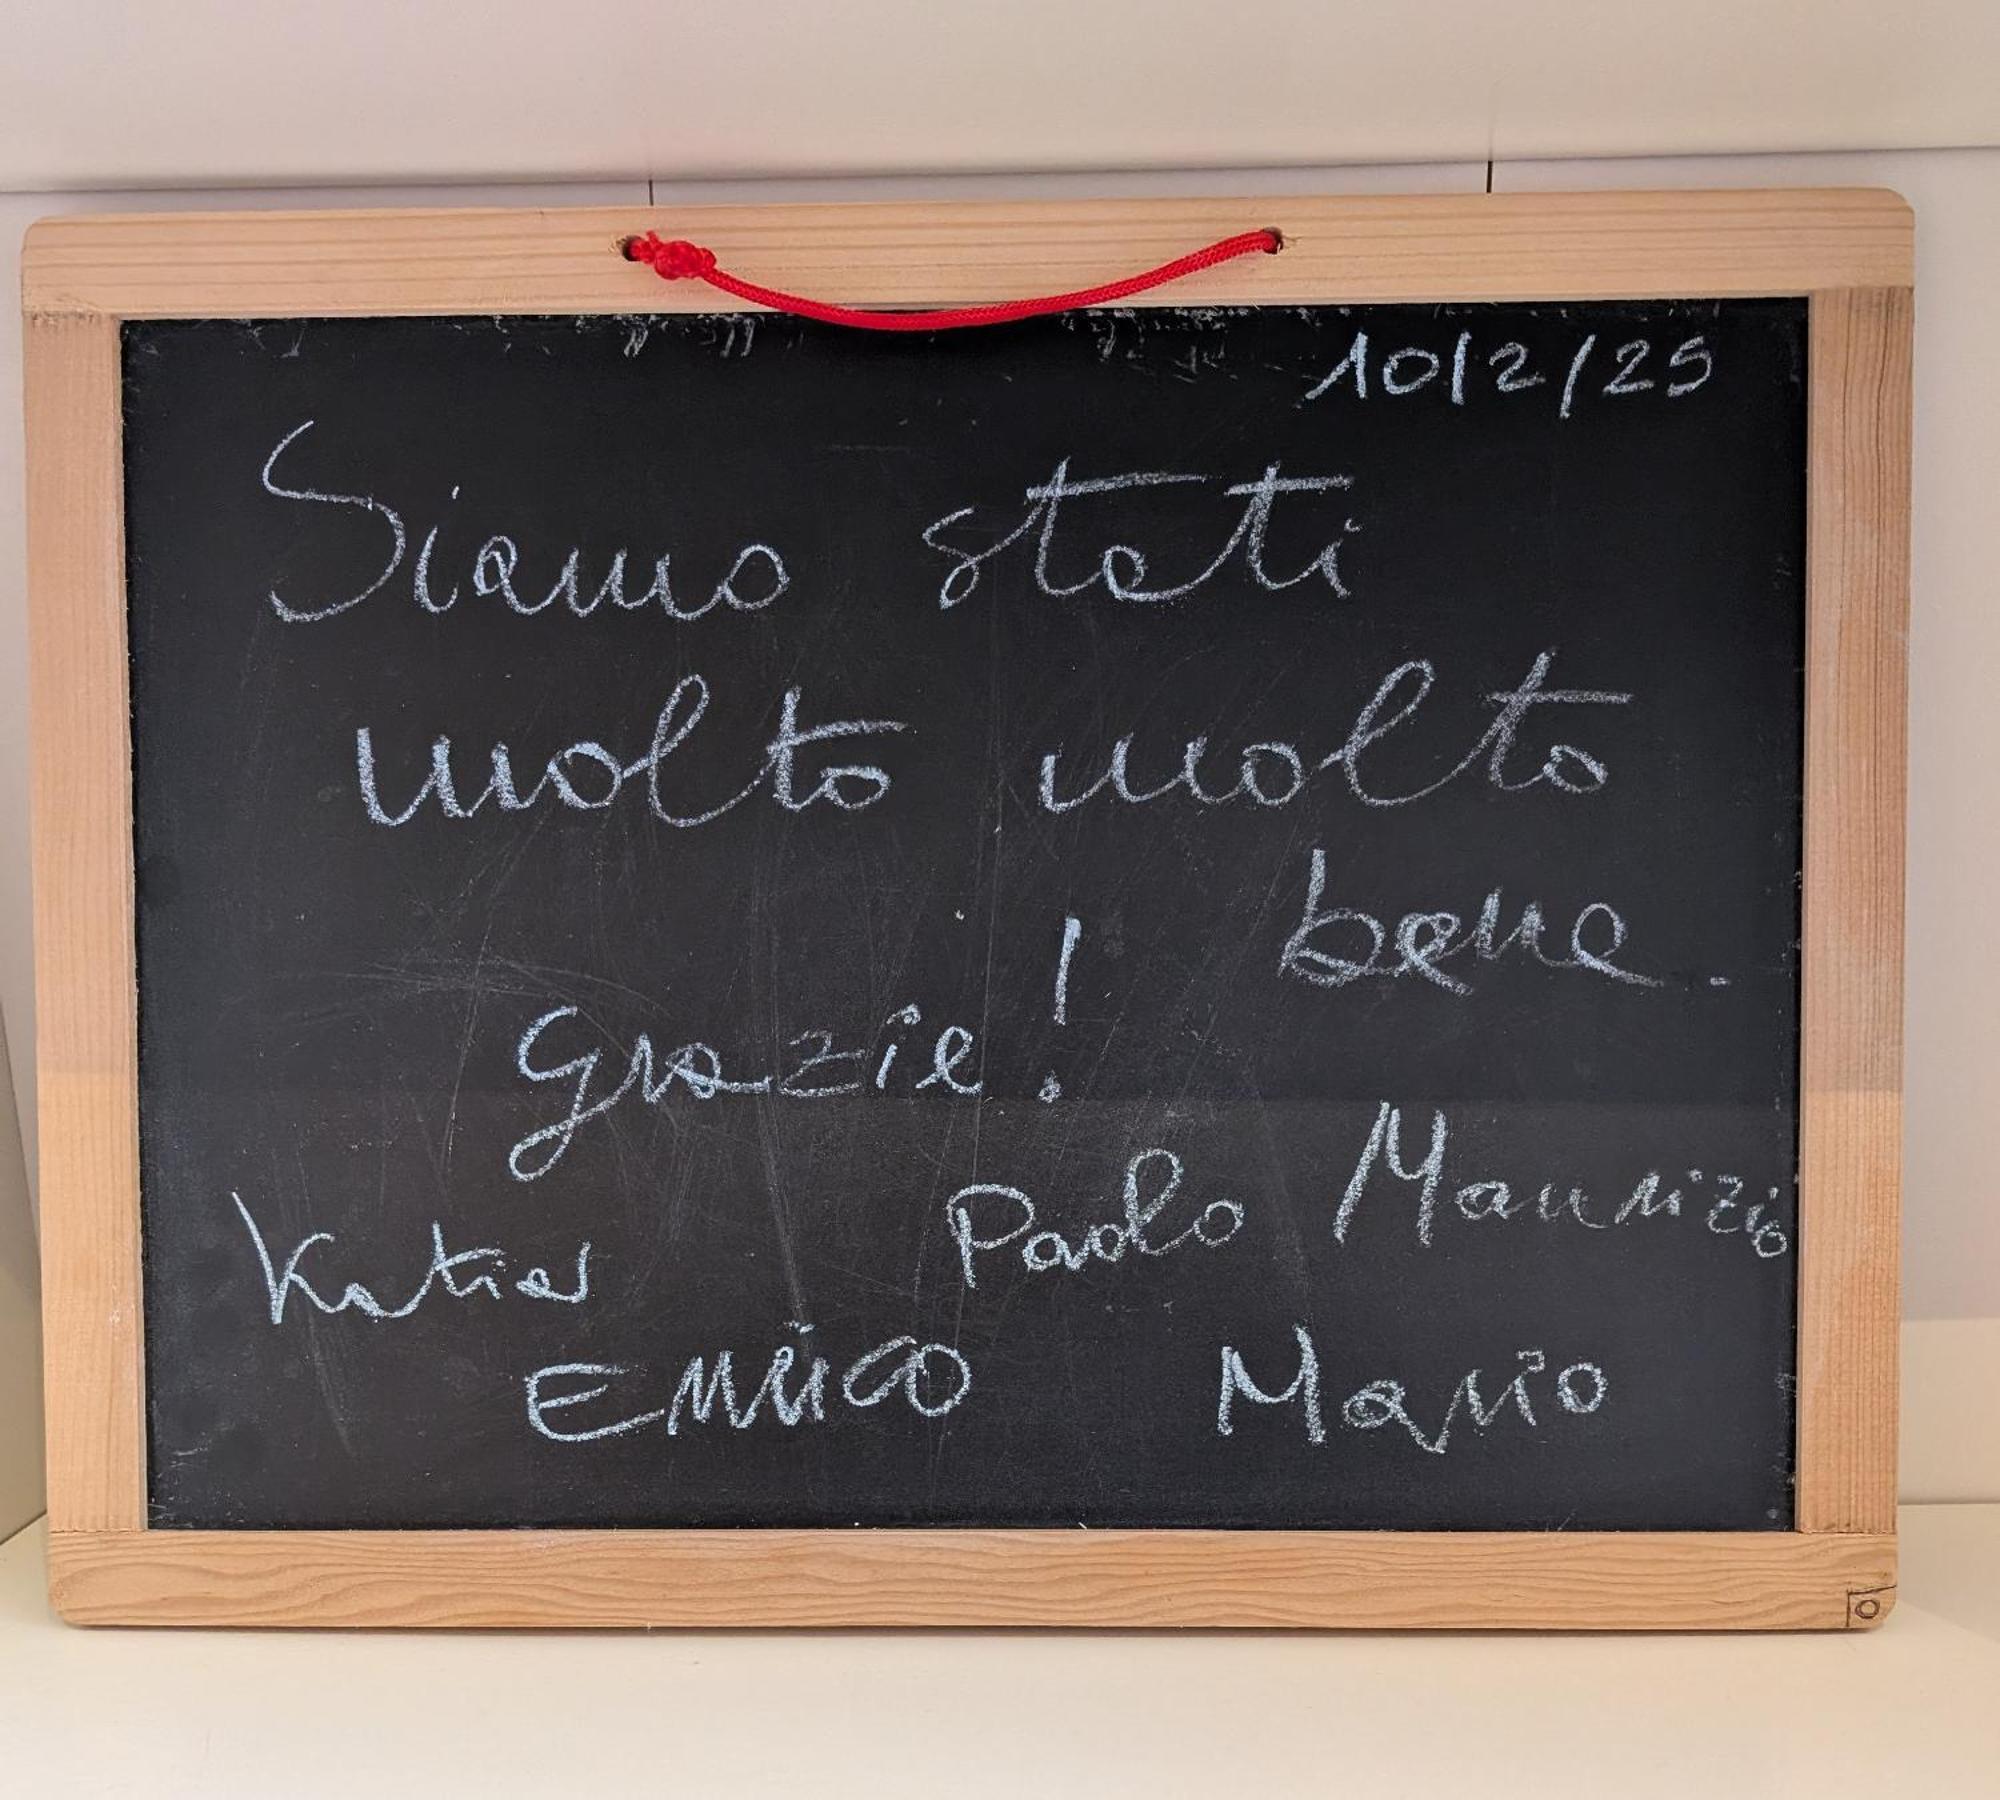 10/2/25
Siamo stati
molto molto
bene.
Grazie!
Paolo Maurizio
Katia
Enrico Mario